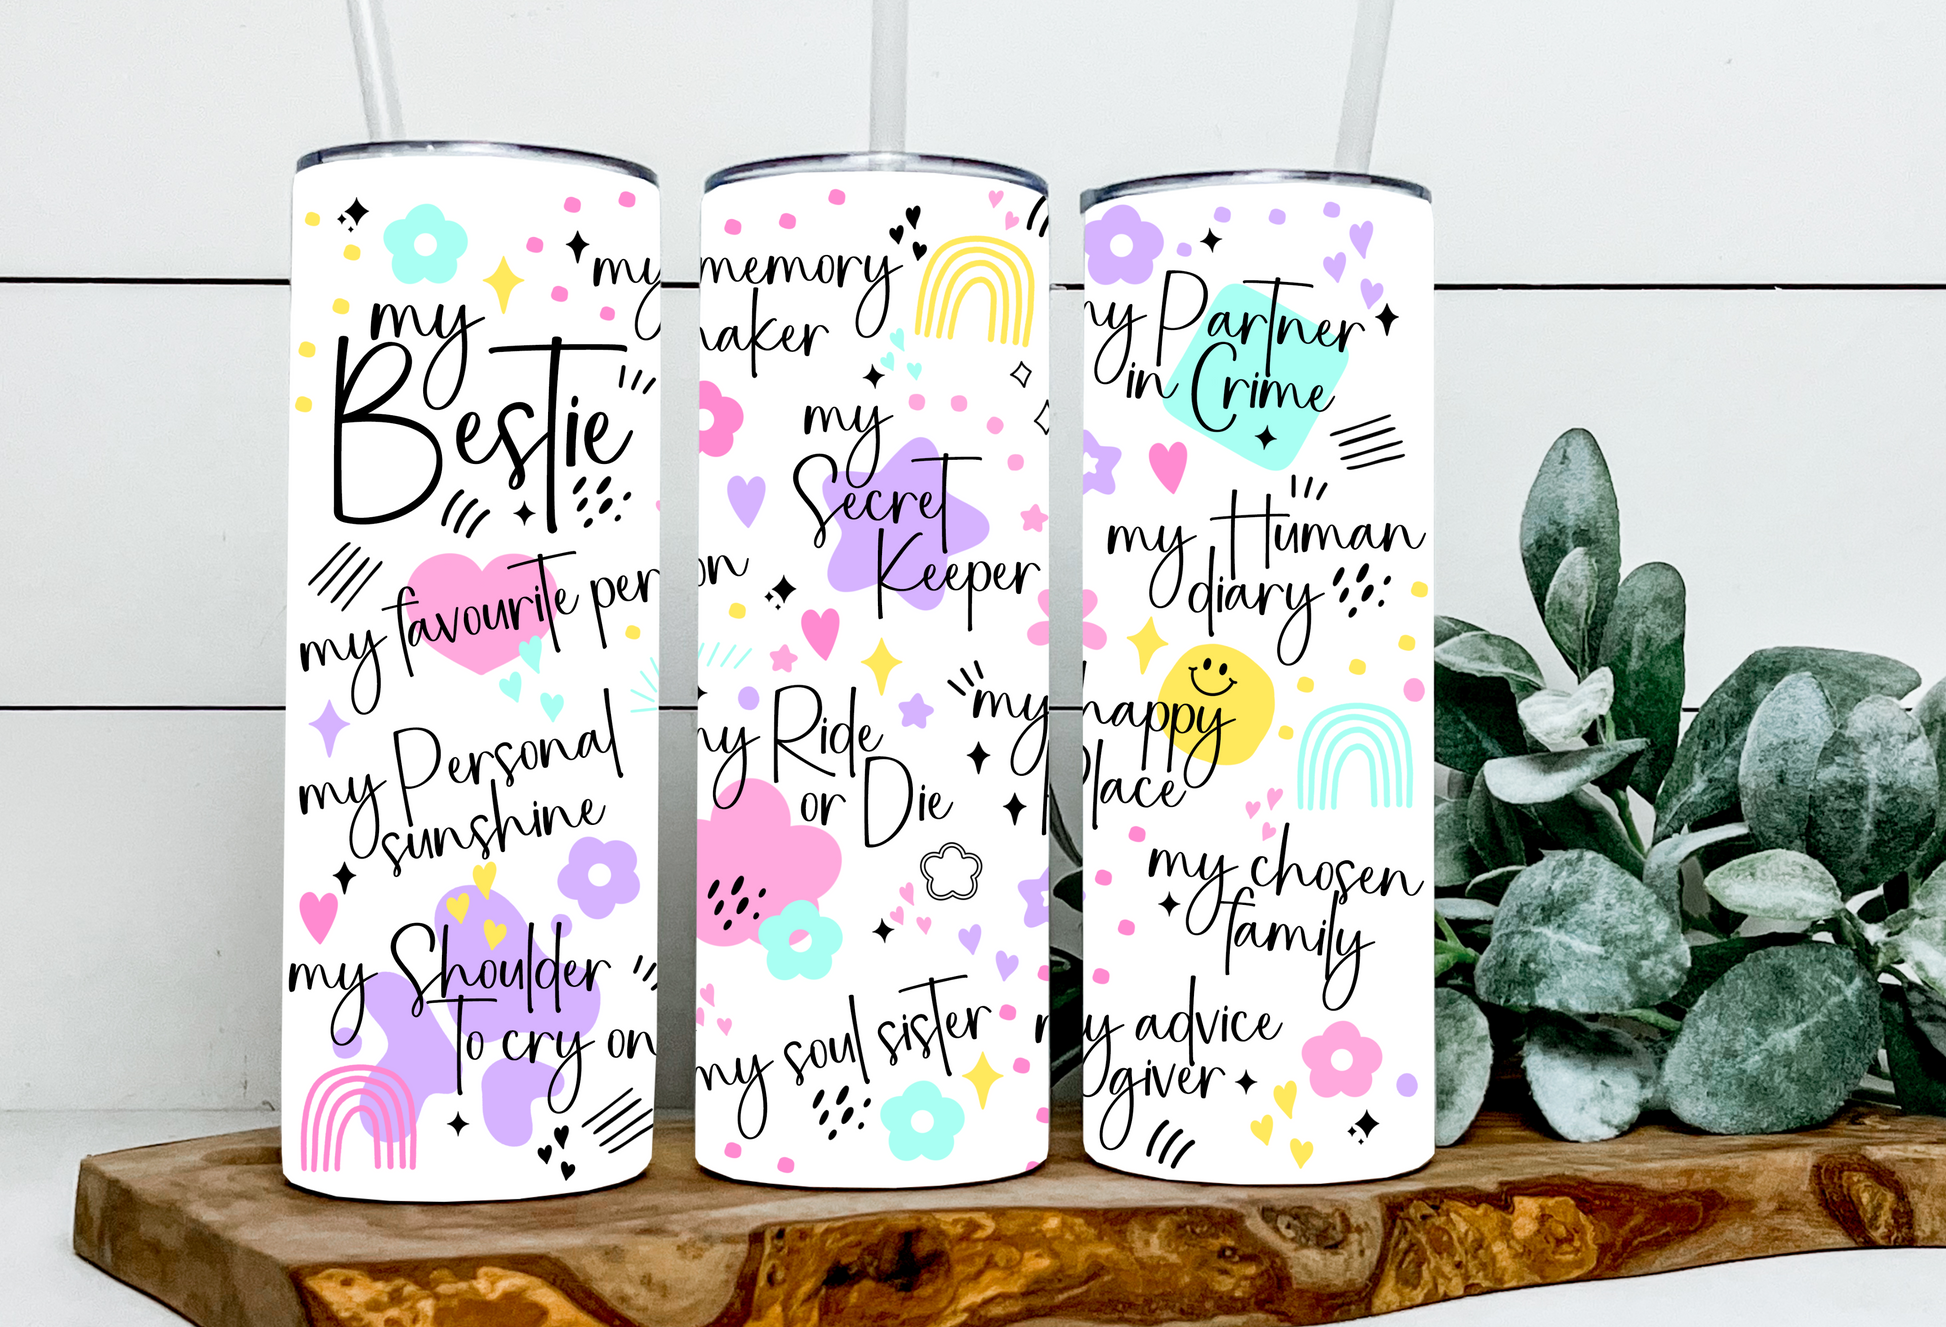 my
Bestie
my
my favourite per
my Personal
sunshine
my Shoulder
To cry on
memory
aker
my
Secret
Keeper
on
my Ride
or Die
my
my soul sister
my Partner
in Crime
my Human
diary
happy
Place
my chosen
family
my advice
giver